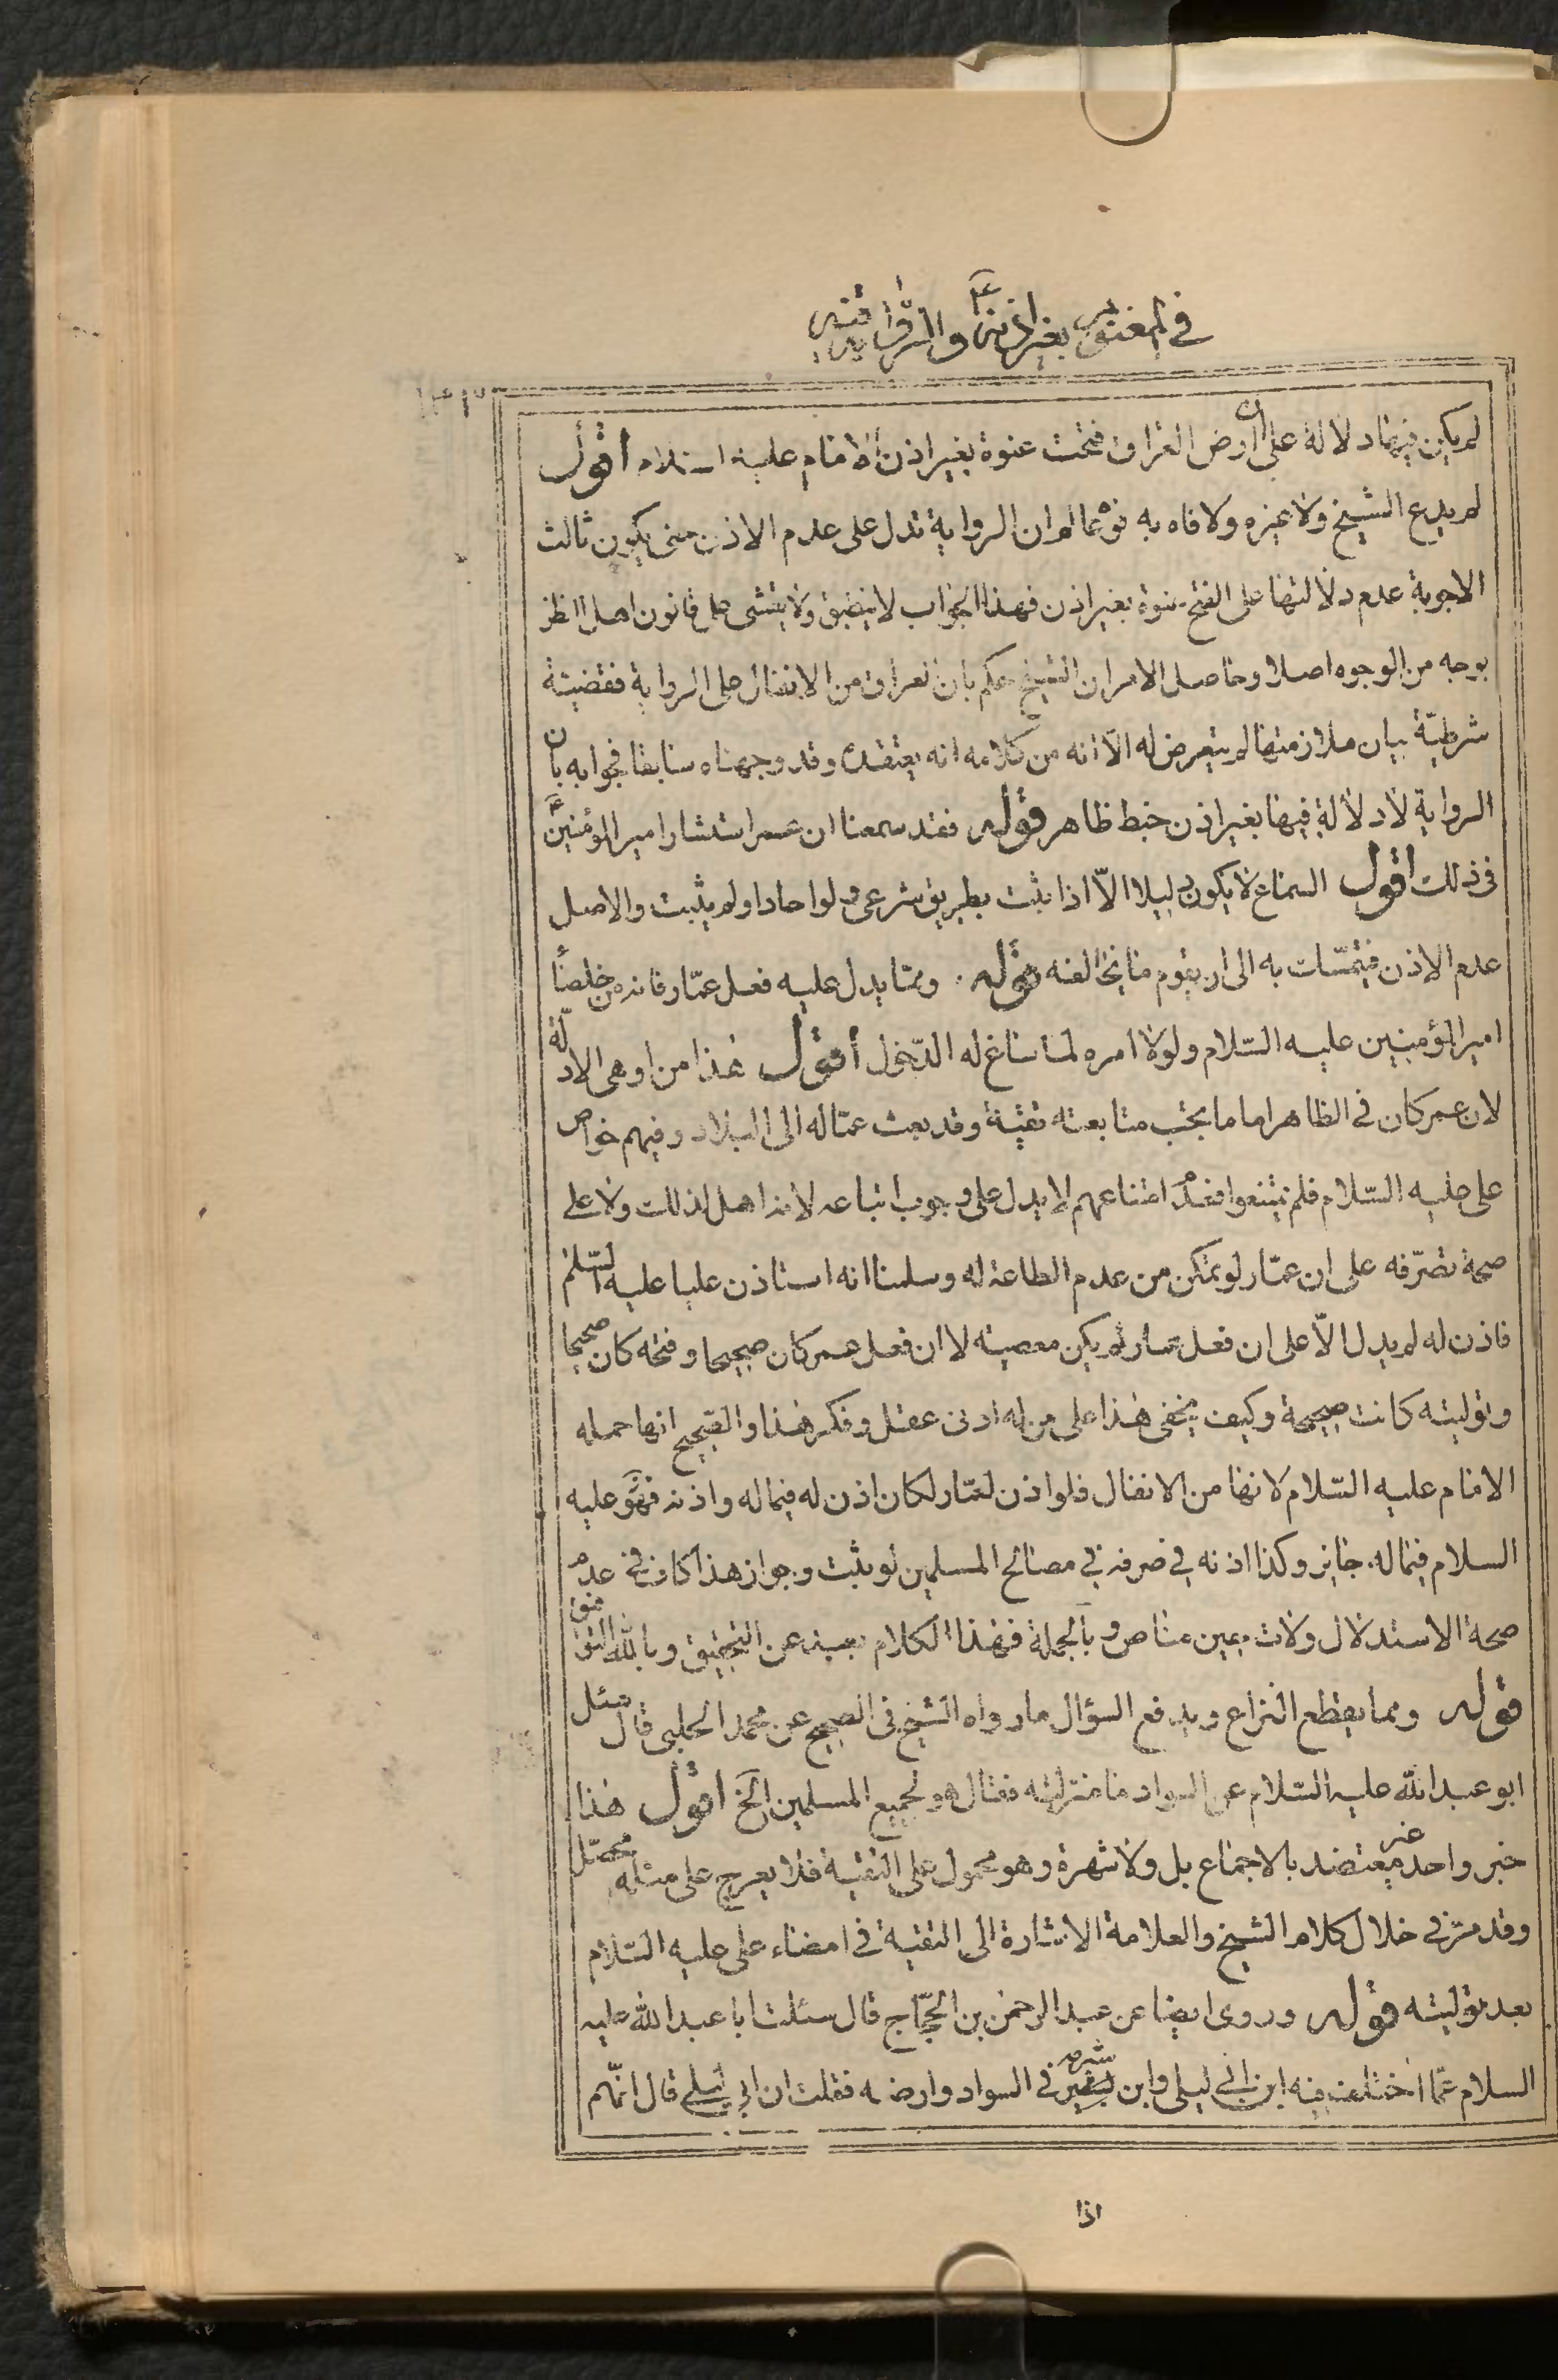 في المغنوم بغير اذنه والرواية فيه
لم يكن فيها دلالة على ان ارض العراق فتحت عنوة بغير اذن الامام عليه السلام اقول
لم يدع الشيخ ولا غيره ولا فاه به فوهما لو ان الرواية تدل على عدم الاذن حتى يكون ثالث
الاجوبة عدم دلالتها على الفتح عنوة بغير اذن فهذا الجواب لا ينضبق ولا يتمشى على قانون اهل النظر
بوجه من الوجوه اصلا وحاصل الامر ان الشيخ حكم بان العراق من الانفال على الرواية فقضيته
شرطيّة بيان ملازمتها لم يتعرض له الاّ انه من كلامه انه يعتقده وقد وجهناه سابقا فجوابه بان
الرواية لا دلالة فيها بغير اذن خبط ظاهر قوله فقد سمعنا ان عمر استشار امير المؤمنين ع
في ذلك اقول السماع لا يكون دليلا الاّ اذا ثبت بطريق شرعي ولو احادا ولم يثبت والاصل
عدم الاذن فيتمسّك به الى ان يقوم ما يخالفه قوله ومما يدل عليه فعل عمّار فانه من خلصاء
امير المؤمنين عليه السّلام ولولا امره لما ساغ له الدّخول اقول هذا من اوهى الادلّة
لان عمر كان في الظاهر اماما يجب متابعته تقيّة وقد بعث عمّاله الى البلاد وفيهم خواص
على عليه السّلام فلم يمتنعوا فعدم امتناعهم لا يدل على وجوب اتباعه لانه اهل لذلك ولا على
صحة تصرّفه على ان عمّار لو تمكن من عدم الطاعة له وسلمنا انه استاذن عليا عليه السّلم
فاذن له لم يدل الاّ على ان فعل عمار لم يكن معصية لا ان فعل عمر كان صحيحا وفتحه كان صحيحا
وتوليته كانت صحيحة وكيف يخفى هذا على من له ادنى عقل وفكر هذا والقبيح انها حمله
الامام عليه السّلام لانها من الانفال فلو اذن لعمّار لكان اذن له فيما له واذنه فهو عليه
السلام فيما له جايز وكذا اذنه في صرفه في مصالح المسلمين لو يثبت وجواز هذا كاف في عدم
صحة الاستدلال ولات حين مناص وبالجملة فهذا الكلام بعيد عن التحقيق وبالله التوفيق
قوله ومما يقطع النزاع ويدفع السؤال ما رواه الشيخ في الصحيح عن محمد الحلبي قال سئل
ابو عبد الله عليه السّلام عن السواد ما منزلته فقال هو لجميع المسلمين الخ اقول هذا
خبر واحد غير معتضد بالاجماع بل ولا شهرة وهو محمول على التقية فلا يعرج على مثله محصّل
وقد مرّ في خلال كلام الشيخ والعلامة الاشارة الى التقية في امضاء على عليه السّلام
بعد توليته قوله وروى ايضا عن عبد الرحمن بن الحجّاج قال سئلت ابا عبد الله عليه
السلام عمّا اختلف فيه ابن ابي ليلى وابن شبرمه في السواد وارضه فقلت ان ابن ابي ليلى قال انّهم
اذا